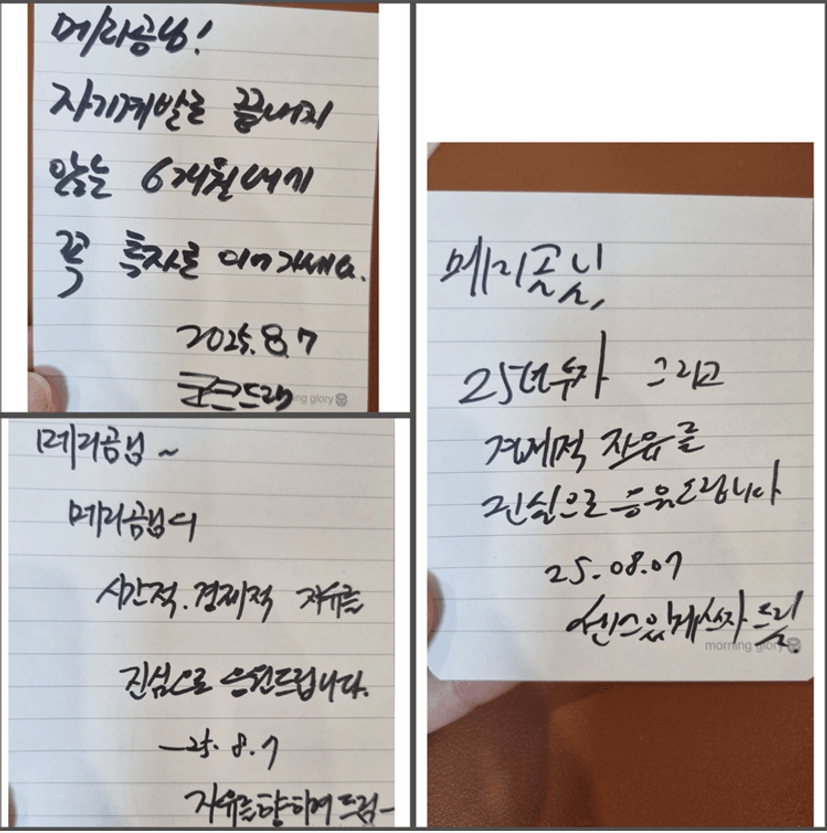 메리공님!
자기계발로 끝내지
않는 6개월내에
꼭 투자로 이어가세요.
2025.8.7
드림
morning glory
메리공님~
메리공님의
시간적.경제적 자유를
진심으로 응원드립니다.
-25.8.7
자유를향하여 드림-
메리공님,
25년 투자 그리고
경제적 자유를
진심으로 응원드립니다
25.08.07
센스있게쓰자 드림.
morning glory